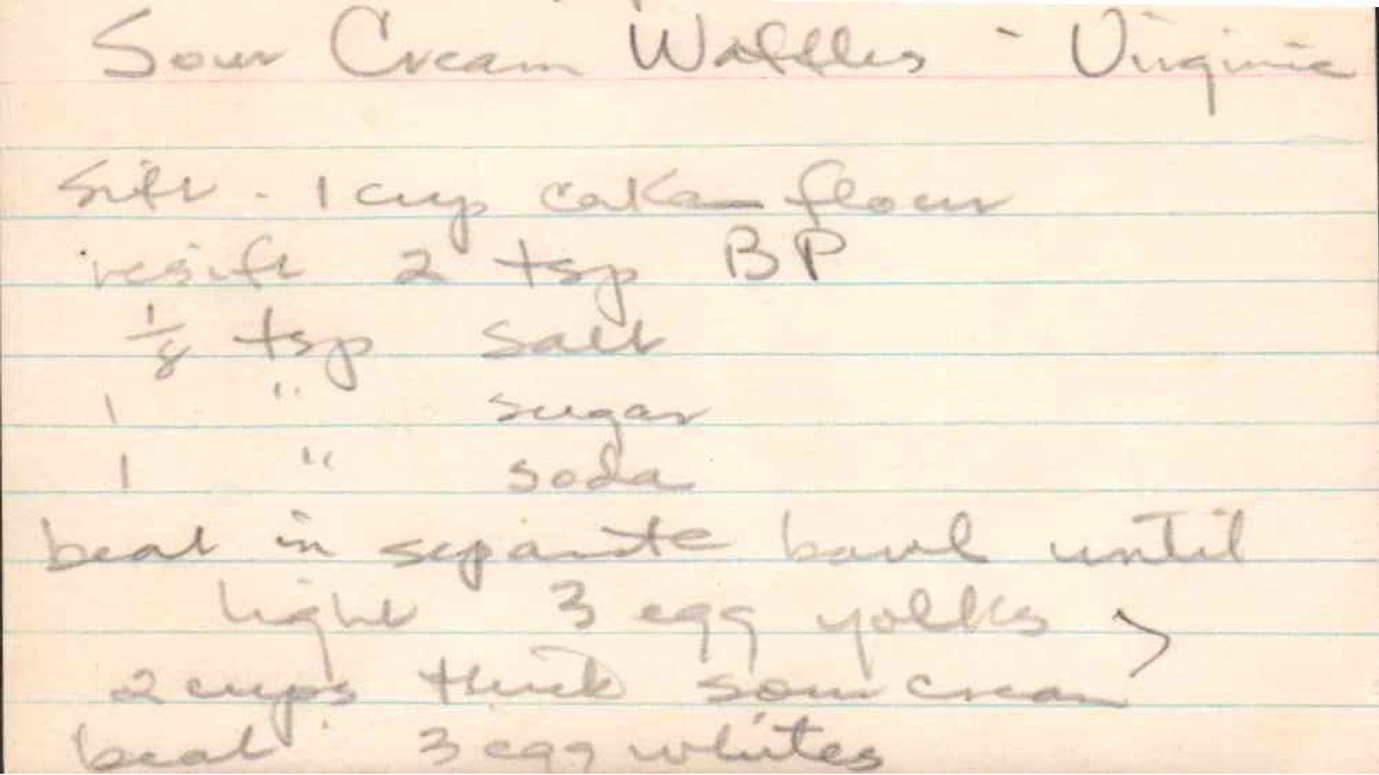 Sour Cream Waffles - Virginia
Sift - 1 cup cake flour
resift 2 tsp BP
1/8 tsp salt
1 " sugar
1 " soda
beat in separate bowl until
light 3 egg yolks >
2 cups thick sour cream
beat 3 egg whites